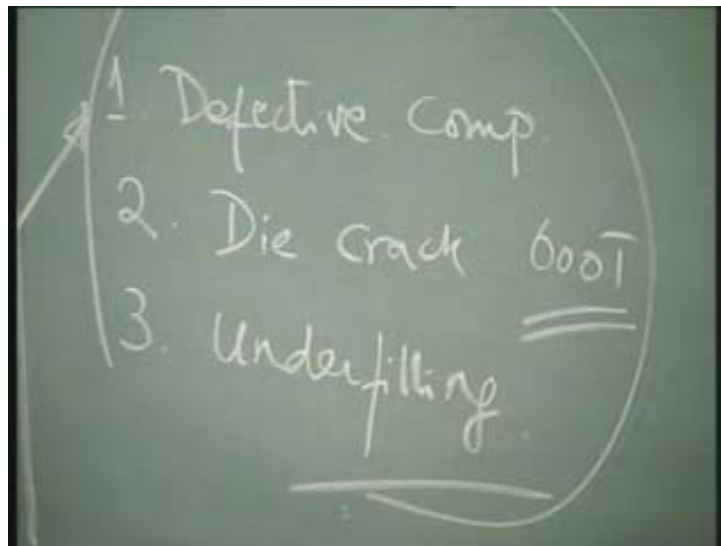 1. Defective Comp.
2. Die crack 600T
3. Underfilling.